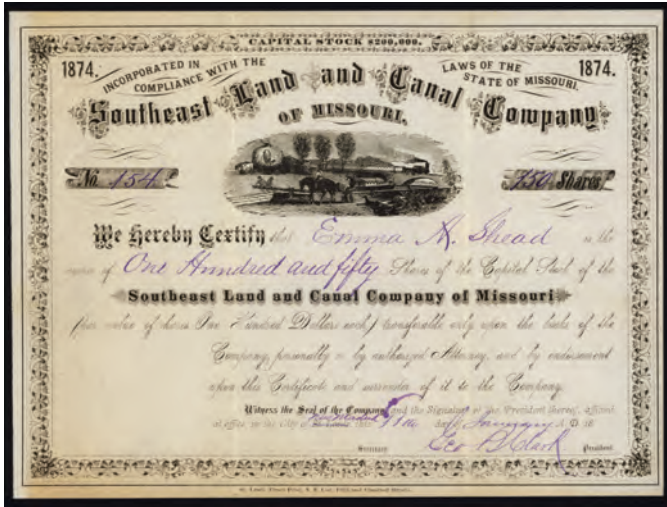 CAPITAL STOCK $200,000.
1874. INCORPORATED IN COMPLIANCE WITH THE LAWS OF THE STATE OF MISSOURI. 1874.
Southeast Land and Canal Company
OF MISSOURI.
No. 154 150 Shares
We Hereby Certify that Emma A. Shead is the
owner of One Hundred and fifty Shares of the Capital Stock of the
Southeast Land and Canal Company of Missouri
(par value of shares One Hundred Dollars each) transferable only upon the books of the
Company, personally or by authorized Attorney, and by endorsement
upon this Certificate and surrender of it to the Company.
Witness the Seal of the Company and the Signature of the President thereof, affixed
at office, in the City this day January A.D. 18
Secretary Geo Clark President